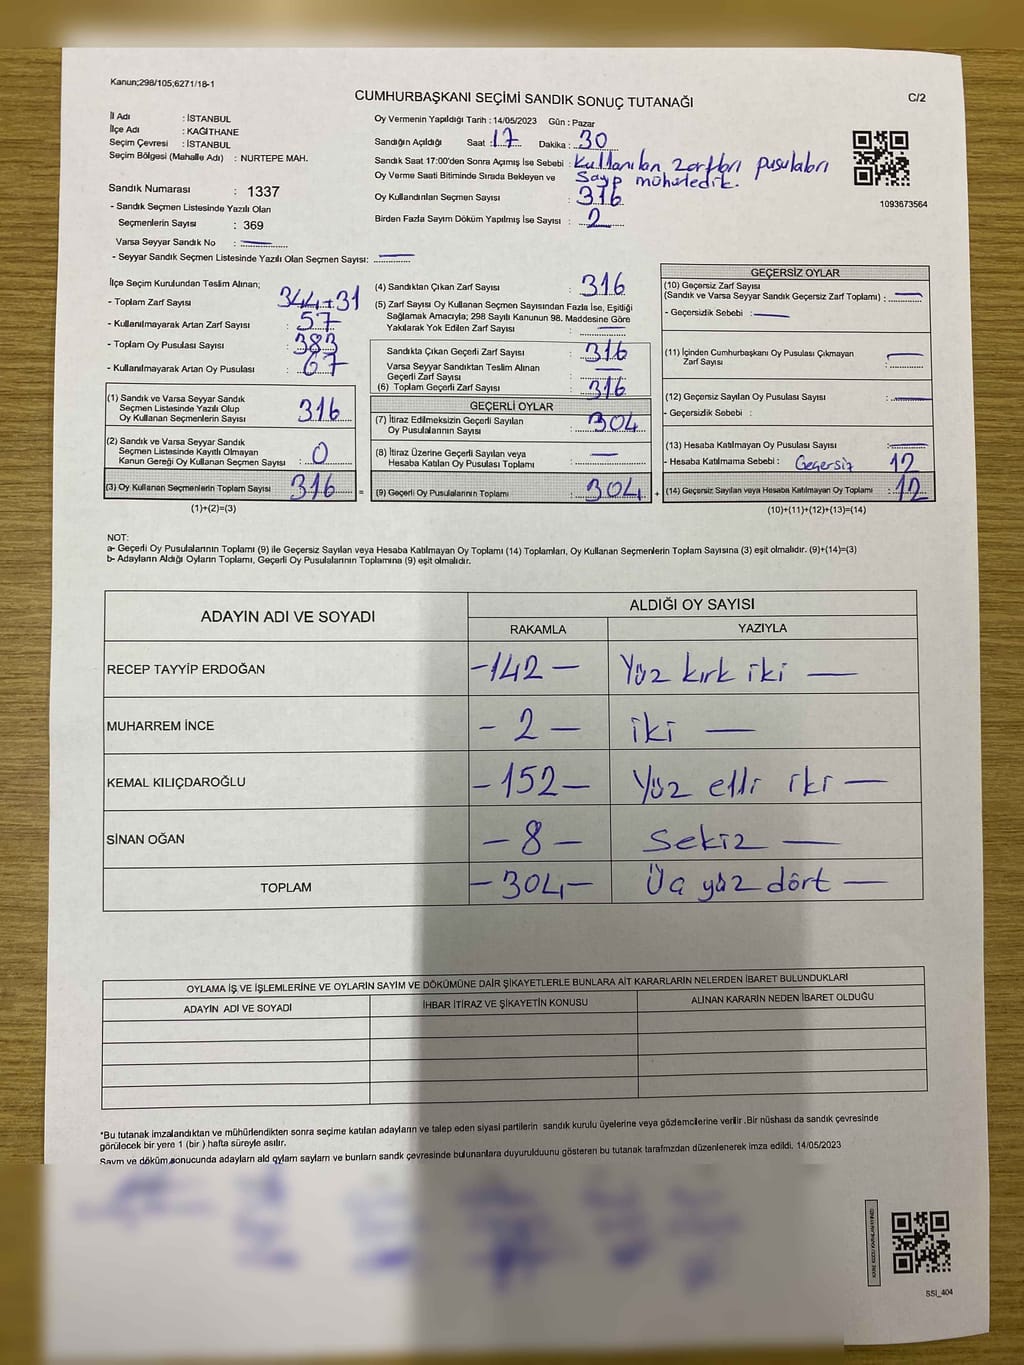 Kanun;298/105;6271/18-1
CUMHURBAŞKANI SEÇİMİ SANDIK SONUÇ TUTANAĞI
C/2
İl Adı : İSTANBUL
İlçe Adı : KAĞITHANE
Seçim Çevresi : İSTANBUL
Seçim Bölgesi (Mahalle Adı) : NURTEPE MAH.
Sandık Numarası : 1337
- Sandık Seçmen Listesinde Yazılı Olan
Seçmenlerin Sayısı : 369
Varsa Seyyar Sandık No :
- Seyyar Sandık Seçmen Listesinde Yazılı Olan Seçmen Sayısı:
Oy Vermenin Yapıldığı Tarih : 14/05/2023 Gün : Pazar
Sandığın Açıldığı Saat : 17 Dakika : 30
Sandık Saat 17:00'den Sonra Açımış İse Sebebi : Kullanılan zarfları pusulaları
Oy Verme Saati Bitiminde Sırada Bekleyen ve Sayıp mühürledik.
Oy Kullandırılan Seçmen Sayısı : 316
Birden Fazla Sayım Döküm Yapılmış İse Sayısı : 2
1093673564
İlçe Seçim Kurulundan Teslim Alınan;
- Toplam Zarf Sayısı 344+31
- Kullanılmayarak Artan Zarf Sayısı : 57
- Toplam Oy Pusulası Sayısı : 383
- Kullanılmayarak Artan Oy Pusulası : 67
(1) Sandık ve Varsa Seyyar Sandık
Seçmen Listesinde Yazılı Olup
Oy Kullanan Seçmenlerin Sayısı : 316
(2) Sandık ve Varsa Seyyar Sandık
Seçmen Listesinde Kayıtlı Olmayan
Kanun Gereği Oy Kullanan Seçmen Sayısı : 0
(3) Oy Kullanan Seçmenlerin Toplam Sayısı 316
(1)+(2)=(3)
(4) Sandıktan Çıkan Zarf Sayısı : 316
(5) Zarf Sayısı Oy Kullanan Seçmen Sayısından Fazla İse, Eşitliği
Sağlamak Amacıyla; 298 Sayılı Kanunun 98. Maddesine Göre
Yakılarak Yok Edilen Zarf Sayısı :
Sandıkta Çıkan Geçerli Zarf Sayısı : 316
Varsa Seyyar Sandıktan Teslim Alınan
Geçerli Zarf Sayısı :
(6) Toplam Geçerli Zarf Sayısı : 316
GEÇERLİ OYLAR
(7) İtiraz Edilmeksizin Geçerli Sayılan
Oy Pusulalarının Sayısı : 304
(8) İtiraz Üzerine Geçerli Sayılan veya
Hesaba Katılan Oy Pusulası Toplamı :
= (9) Geçerli Oy Pusulalarının Toplamı : 304 +
GEÇERSİZ OYLAR
(10) Geçersiz Zarf Sayısı
(Sandık ve Varsa Seyyar Sandık Geçersiz Zarf Toplamı) :
- Geçersizlik Sebebi :
(11) İçinden Cumhurbaşkanı Oy Pusulası Çıkmayan
Zarf Sayısı :
(12) Geçersiz Sayılan Oy Pusulası Sayısı :
- Geçersizlik Sebebi :
(13) Hesaba Katılmayan Oy Pusulası Sayısı :
- Hesaba Katılmama Sebebi : Geçersiz 12
(14) Geçersiz Sayılan veya Hesaba Katılmayan Oy Toplamı : 12
(10)+(11)+(12)+(13)=(14)
NOT:
a- Geçerli Oy Pusulalarının Toplamı (9) ile Geçersiz Sayılan veya Hesaba Katılmayan Oy Toplamı (14) Toplamları, Oy Kullanan Seçmenlerin Toplam Sayısına (3) eşit olmalıdır. (9)+(14)=(3)
b- Adayların Aldığı Oyların Toplamı, Geçerli Oy Pusulalarının Toplamına (9) eşit olmalıdır.
ADAYIN ADI VE SOYADI
ALDIĞI OY SAYISI
RAKAMLA YAZIYLA
RECEP TAYYİP ERDOĞAN -142- Yüz kırk iki -
MUHARREM İNCE -2- iki -
KEMAL KILIÇDAROĞLU -152- Yüz elli iki -
SİNAN OĞAN -8- Sekiz -
TOPLAM -304- Üç yüz dört -
OYLAMA İŞ VE İŞLEMLERİNE VE OYLARIN SAYIM VE DÖKÜMÜNE DAİR ŞİKAYETLERLE BUNLARA AİT KARARLARIN NELERDEN İBARET BULUNDUKLARI
ADAYIN ADI VE SOYADI İHBAR İTİRAZ VE ŞİKAYETİN KONUSU ALINAN KARARIN NEDEN İBARET OLDUĞU
*Bu tutanak imzalandıktan ve mühürlendikten sonra seçime katılan adayların ve talep eden siyasi partilerin sandık kurulu üyelerine veya gözlemcilerine verilir .Bir nüshası da sandık çevresinde
görülecek bir yere 1 (bir ) hafta süreyle asılır.
Sayım ve döküm sonucunda adayların ald oyların sayların ve bunların sandk çevresinde bulunanlara duyurulduunu gösteren bu tutanak tarafmzdan düzenlenerek imza edildi. 14/05/2023
SSİ_404